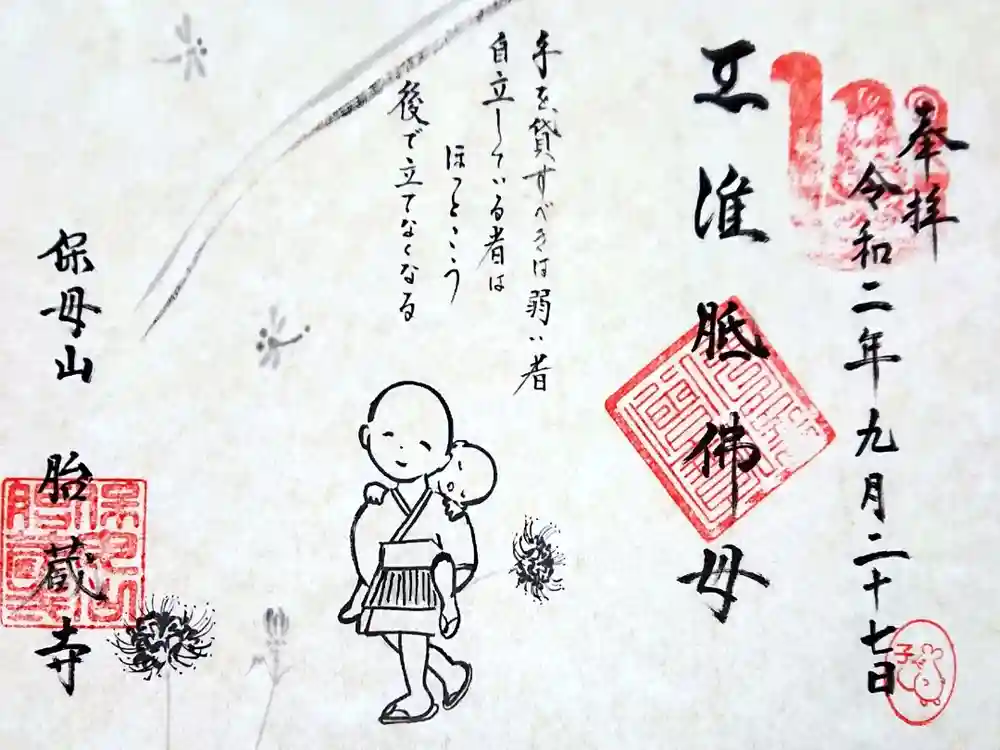 奉拝
令和二年九月二十七日
准胝佛母
手を貸すべきは弱い者
自立している者は
ほっとこう
後で立てなくなる
保母山 胎蔵寺
子